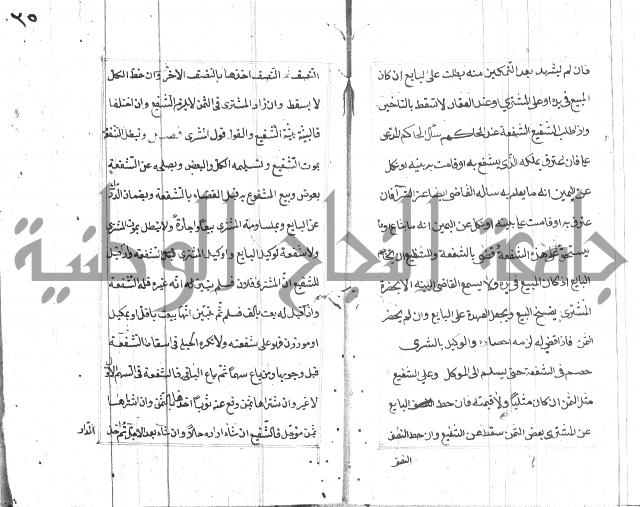 فان لم يشهد بعد التمكين منه بطلت على البايع ان كان
المبيع في يده او على المشتري او عند العقار لا تسقط بالتاخير
واذا طلب الشفيع الشفعة عند الحاكم سأل الحاكم المدعى
عليه فان اعترف بملكه الذي يشفع به او قامت به بينة او نكل
عن اليمين انه ما يعلم به سأله القاضي ايضا عن الشراء فان
اعترف به او قامت عليه بينة او نكل عن اليمين انه ما ابتاع او ما
يستحق عليه هذه الشفعة قضى بالشفعة وللشفيع ان يخاصم
البايع اذا كان المبيع في يده ولا يسمع القاضي البينة الا بحضرة
المشتري يفسخ البيع ويجعل العهدة على البايع وان لم يحضر
الثمن فاذا قضي له لزمه احضاره والوكيل بالشرى
خصم في الشفعة حتى يسلم الى الموكل وعلى الشفيع
مثل الثمن ان كان مثليا والا قيمته فان حط البايع
عن المشتري بعض الثمن سقط عن الشفيع وان حط النصف
النصف
٢٥
النصف ثم النصف اخذها بالنصف الاخر وان حط الكل
لا يسقط وان زاد المشتري في الثمن لا يلزم الشفيع وان اختلفا
فالبينة بينة الشفيع والقول قول المشتري فصل وتبطل الشفعة
بموت الشفيع وتسليمه الكل والبعض وبصلحه عن الشفعة
بعوض وبيع المشفوع به قبل القضاء بالشفعة وبضمان الدرك
عن البايع وبمساومته المشتري بيعا واجارة ولا تبطل بموت المشتري
ولا شفعة لوكيل البايع ولوكيل المشتري الشفعة واذا قيل
للشفيع ان المشتري فلان فسلم ثم تبين له انه غيره فله الشفعة
واذا قيل له بيعت بالف فسلم ثم تبين انها بيعت باقل او بمكيل
او موزون فهو على شفعته ولا تكره الحيلة في اسقاط الشفعة
قبل وجوبها ومن باع سهما ثم باع الباقي فالشفعة في السهم الاول
لا غير وان اشتراها بثمن ودفع عنه ثوبا اخذها بالثمن وان اشتراها
بثمن مؤجل فالشفيع ان شاء اداه حالا وان شاء بعد الاجل ثم اخذ
الدار
جامعة النجاح الوطنية